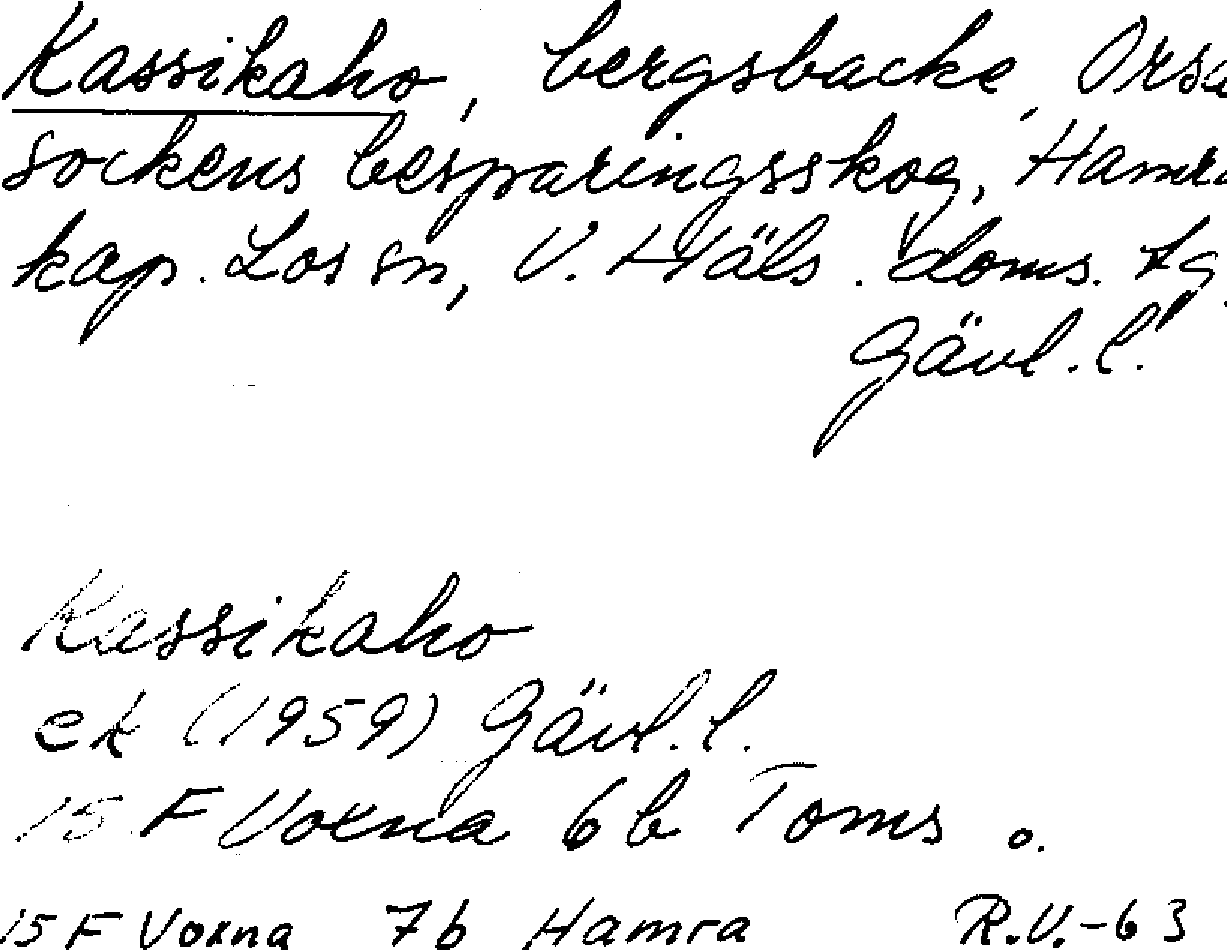 Kassikaho, bergsbacke, Orsa
sockens besparingsskog, Hamra
kap. Los sn, V. Häls. doms. tg,
Gävl. l.
Kassikaho
ek (1959) Gävl. l.
15 F Voxna 6b Toms o.
15 F Voxna 7b Hamra R.V.-63